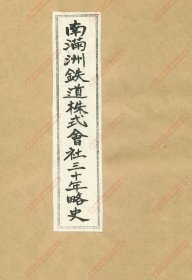 南滿洲鉄道株式會社三十年略史